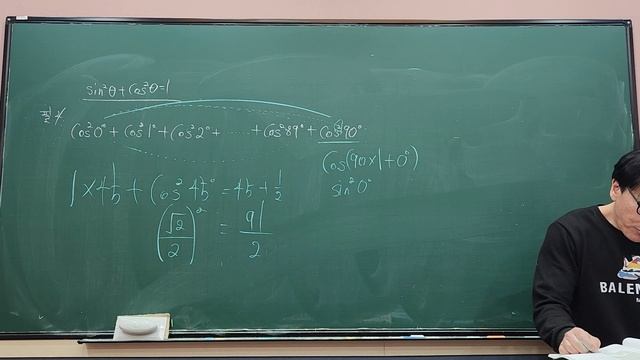 sin²θ + Cos²θ = 1
Cos²0° + Cos²1° + Cos²2° + ...... + Cos²89° + Cos²90°
Cos(90×1+0°)
1 × 45 + Cos² 45° = 45 + 1/2
sin²0°
(√2/2)² = 91/2
BALEN